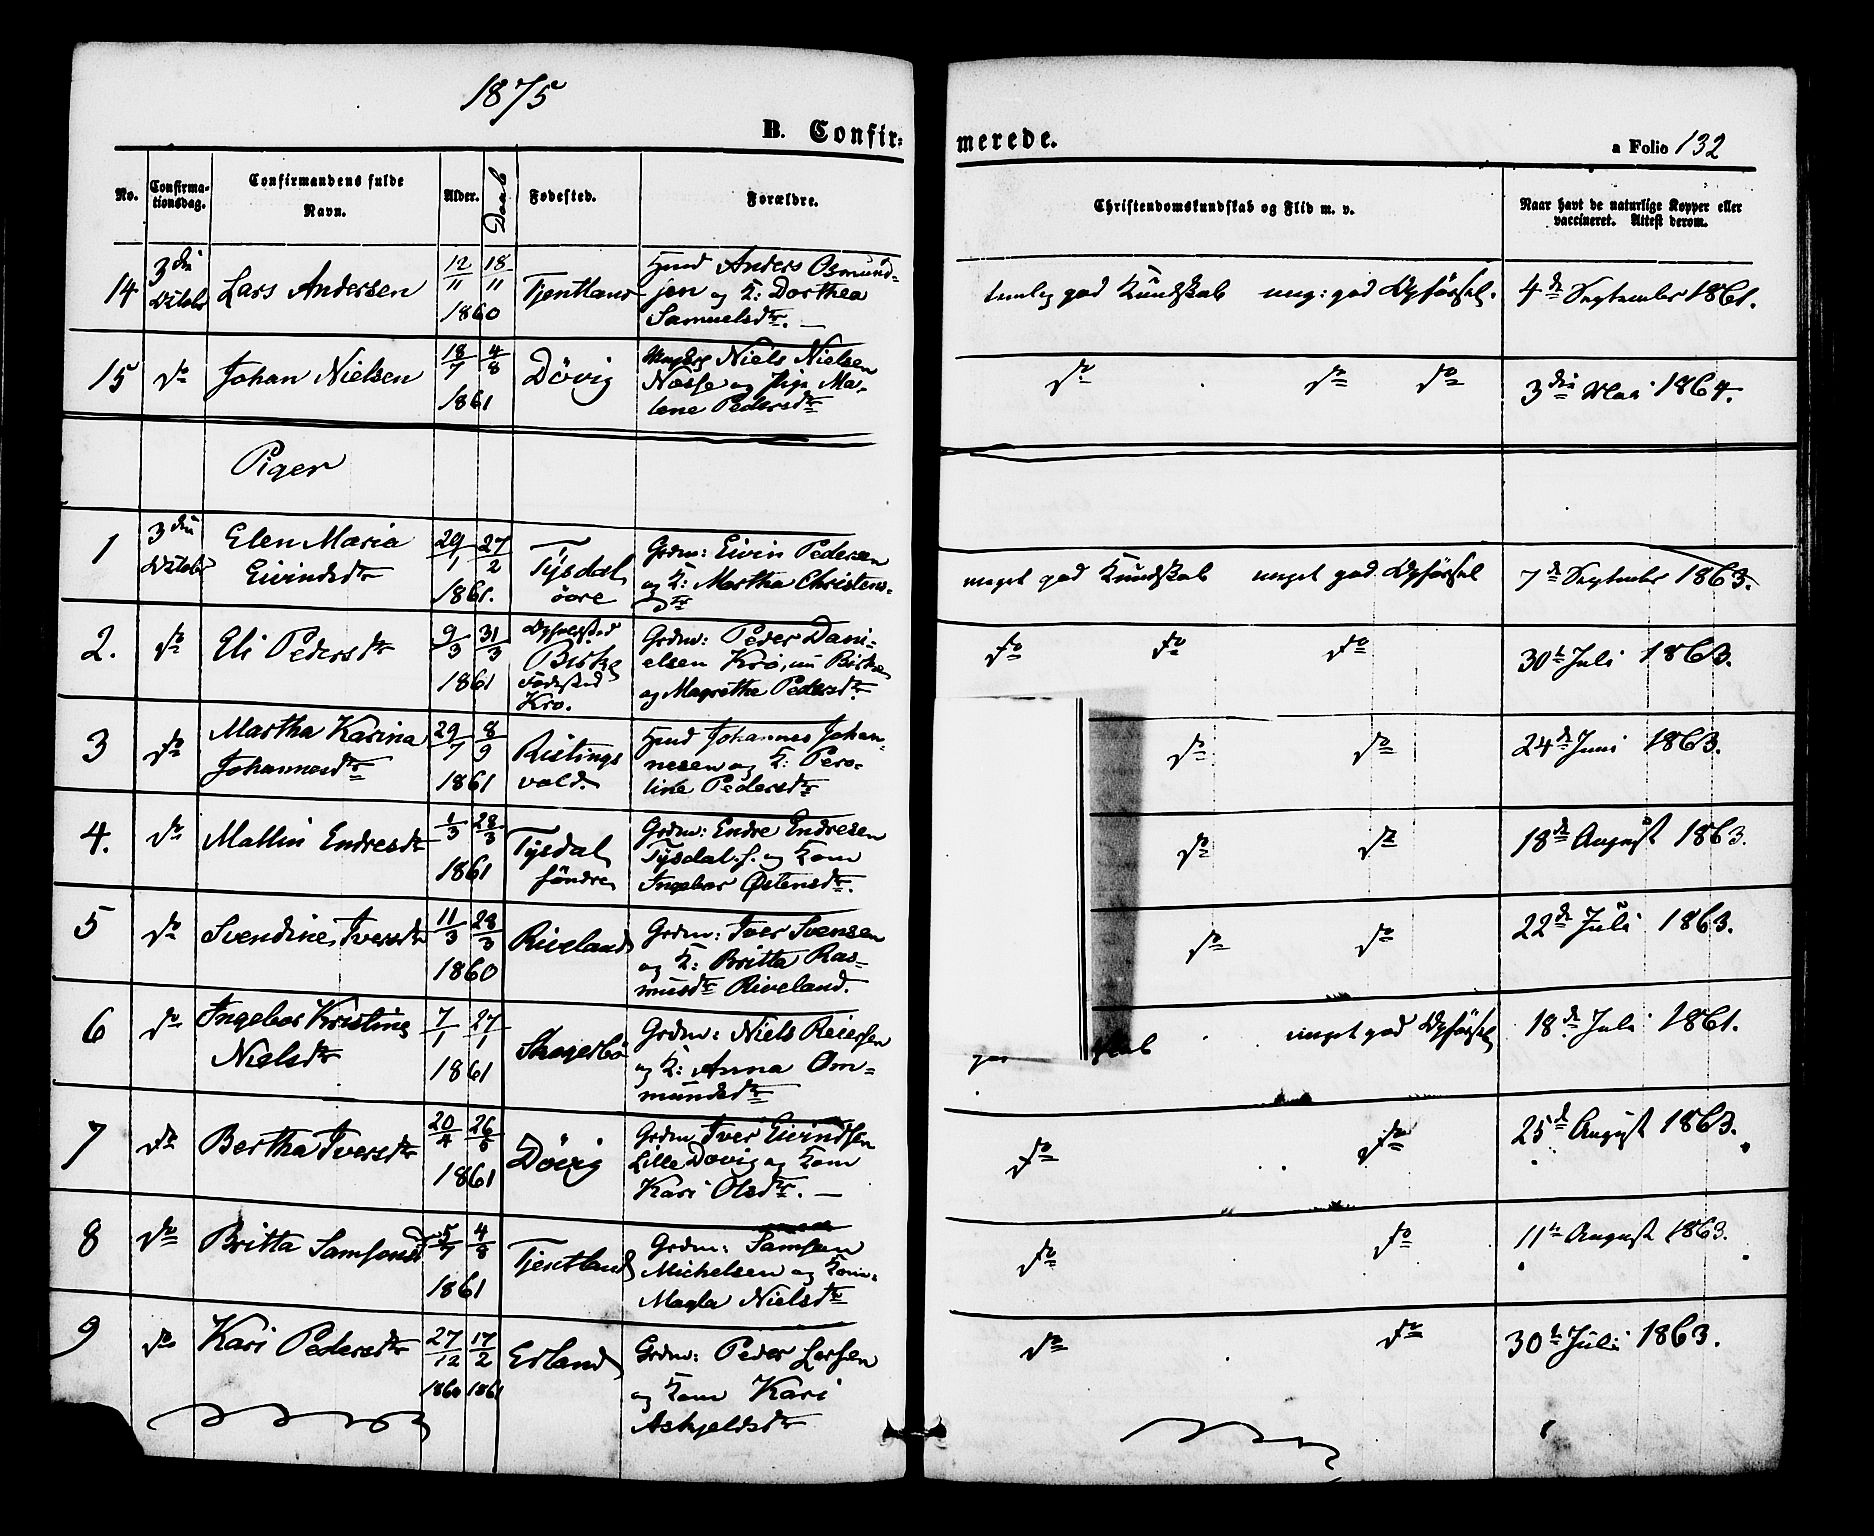 1875
B. Confir-
merede.
a Folio 132
No.
Confirma-
tionsdag.
Confirmandens fulde
Navn.
Alder.
Daab
Fødested.
Forældre.
Christendomskundskab og Flid m. v.
Naar havt de naturlige Kopper eller
vaccineret. Attest derom.
14
3die
Octobr
Lars Andersen
12/11 18/11
1860
Tjentland
Hmd Anders Osmund-
sen og K: Dorthea
Samuelsdtr. —
temlig god Kundskab meg: god Opførsel.
4de September 1861.
15
do
Johan Nielsen
18/7 4/8
1861
Dövig
Niels Nielsen
Næsse og Pige Ma-
lene Pedersdtr
do do do
3die Mai 1864.
Piger
1
3die
Octobr
Elen Maria
Eivindsdtr
29/1 27/2
1861.
Tysdal
övre
Grdm: Eivin Pedersen
og K: Martha Christens-
dtr
meget god Kundskab meget god Opførsel
7de September 1863.
2.
do
Eli Pedersdtr
9/3 31/3
1861
Opholdssted
Birke
Fødested
Kro.
Grdm: Peder Dani-
elsen Krö, nu Birke
og Magrethe Pedersdtr.
do do do
30te Juli 1863.
3
do
Martha Karina
Johannesdtr
29/7 8/9
1861
Ristings
vold.
Hmd Johannes Johan-
nesen og K: Pero-
line Pedersdtr
do do
24de Juni 1863.
4.
do
Mallin Endresdtr
1/3 28/3
1861
Tysdal
söndre
Grdm: Endre Endresen
Tysdal s. og Kone
Ingebor Østensdtr.
do do
18de August 1863.
5
do
Svendine Iversdtr
11/3 28/3
1860
Riveland
Grdm: Iver Svensen
og K: Britta Ras-
musdtr Riveland.
do do
22de Juli 1863.
6
do
Ingebor Kristine
Nielsdtr
7/1 27/1
1861
Skogerbö
Grdm: Niels Reiersen
og K: Anna Om-
mundsdtr
go skab meget god Opførsel
18de Juli 1861.
7
do
Bertha Iversdtr
20/4 26/5
1861
Dövig
Grdm Iver Eivindsen
Lille Dövig og Kone
Kari Olsdtr. —
do do
25de August 1863.
8
do
Britta Samsonsdtr
5/7 4/8
1861
Tjentland
Grdm: Samson
Michelsen og Kone
Magla Nielsdtr
do do
11te August 1863.
9
do
Kari Pedersdtr
27/12 17/2
1860 1861
Erland
Grdm: Peder Larsen
og Kone Kari
Askjeldsdtr
do do
30te Juli 1863.